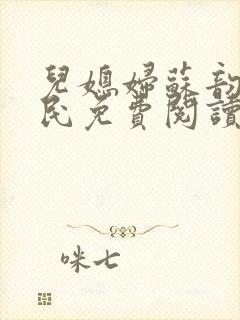 兒媳婦蘇韵
民免費閱讀
咪七